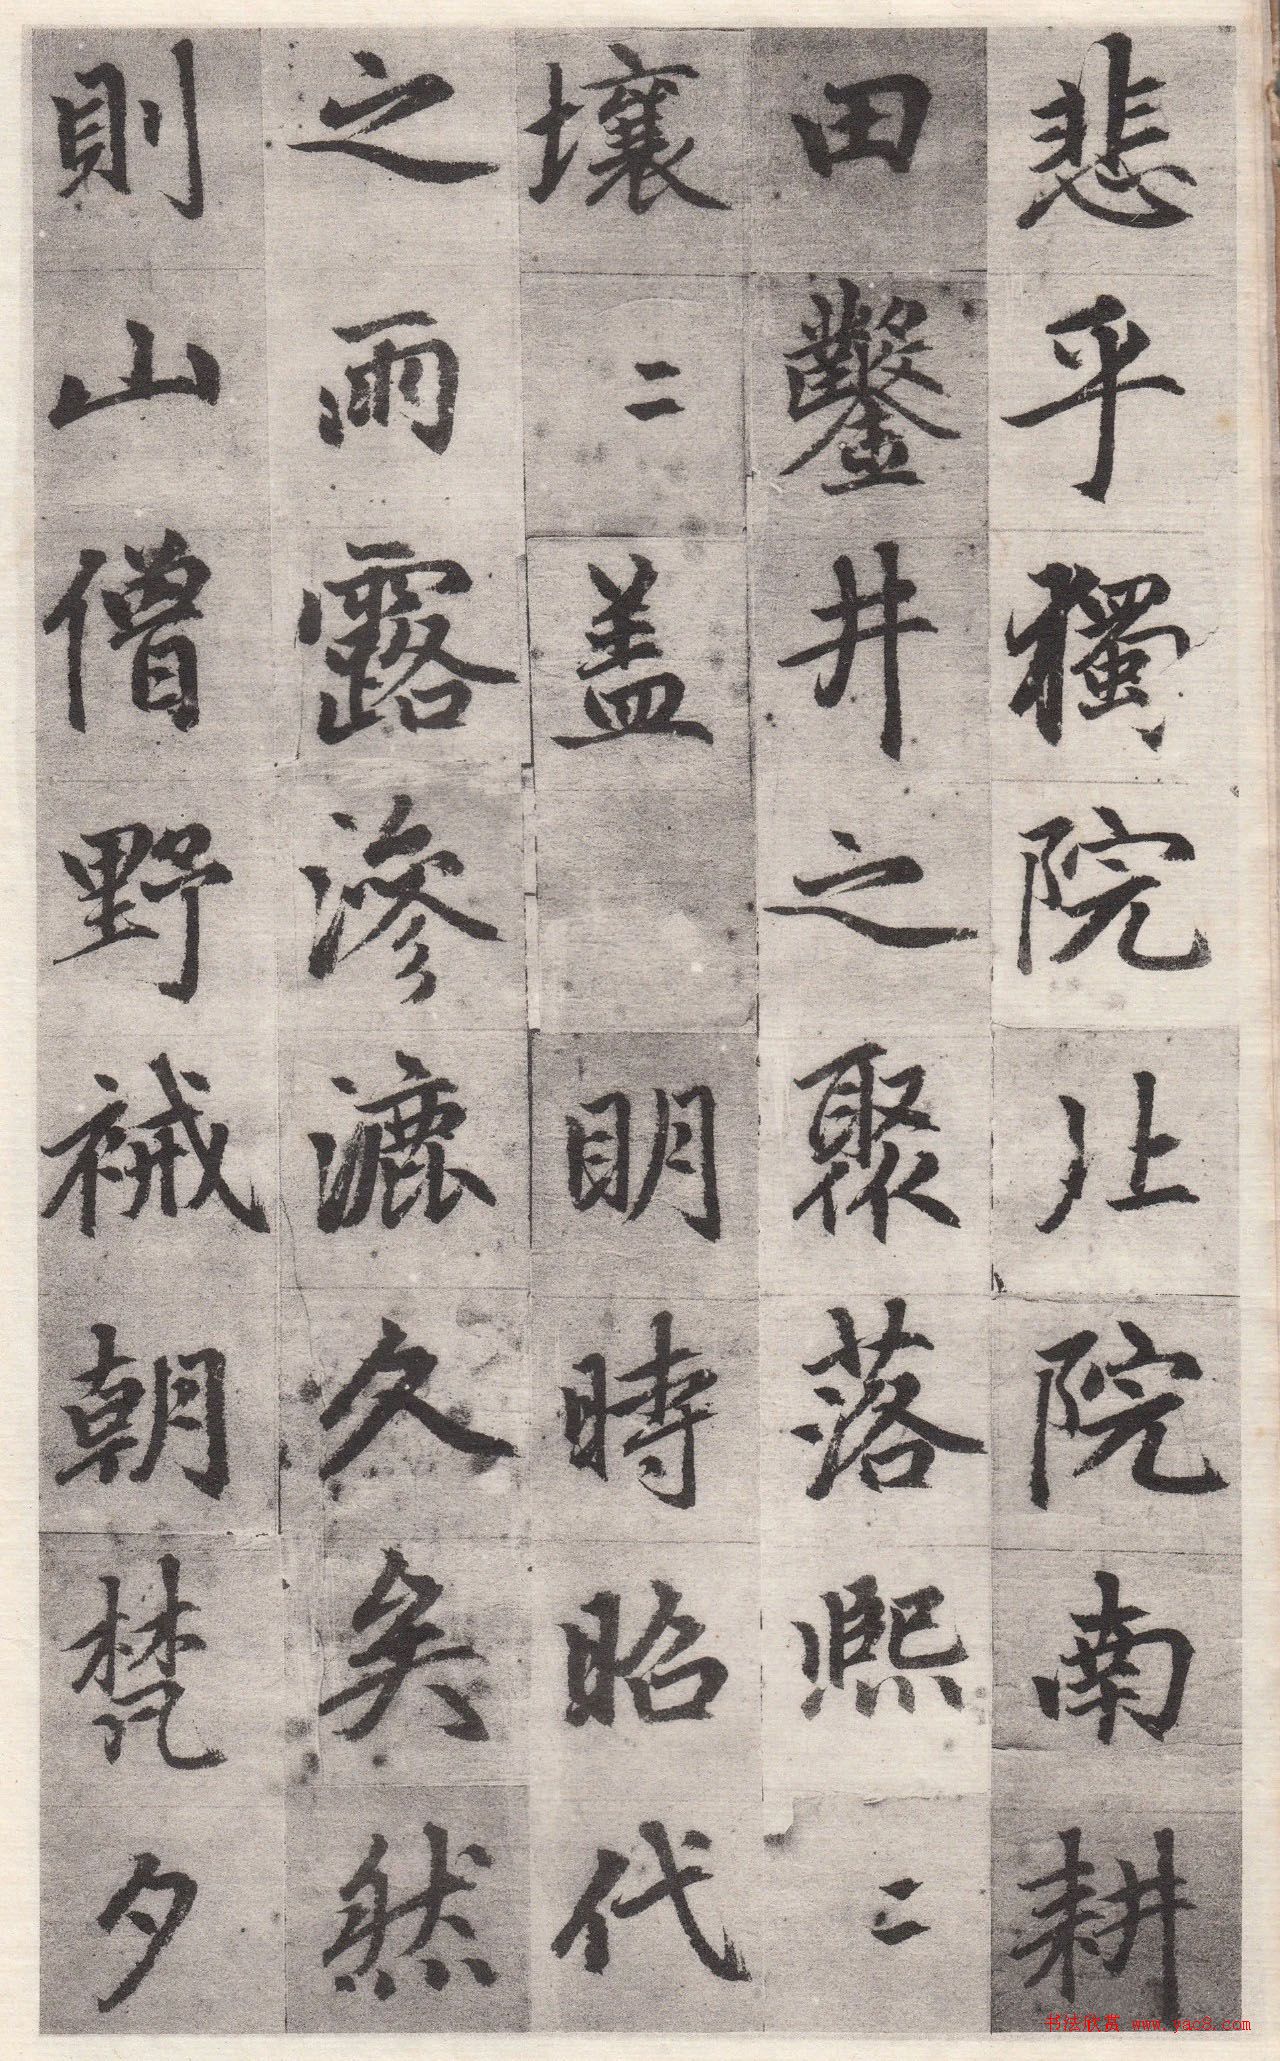 悲乎獨院北院南耕
田鑿井之聚落熙二
壤二盖明時昭代
之雨露滲漉久矣然
則山僧野祴朝梵夕
书法欣赏 www.yac8.com